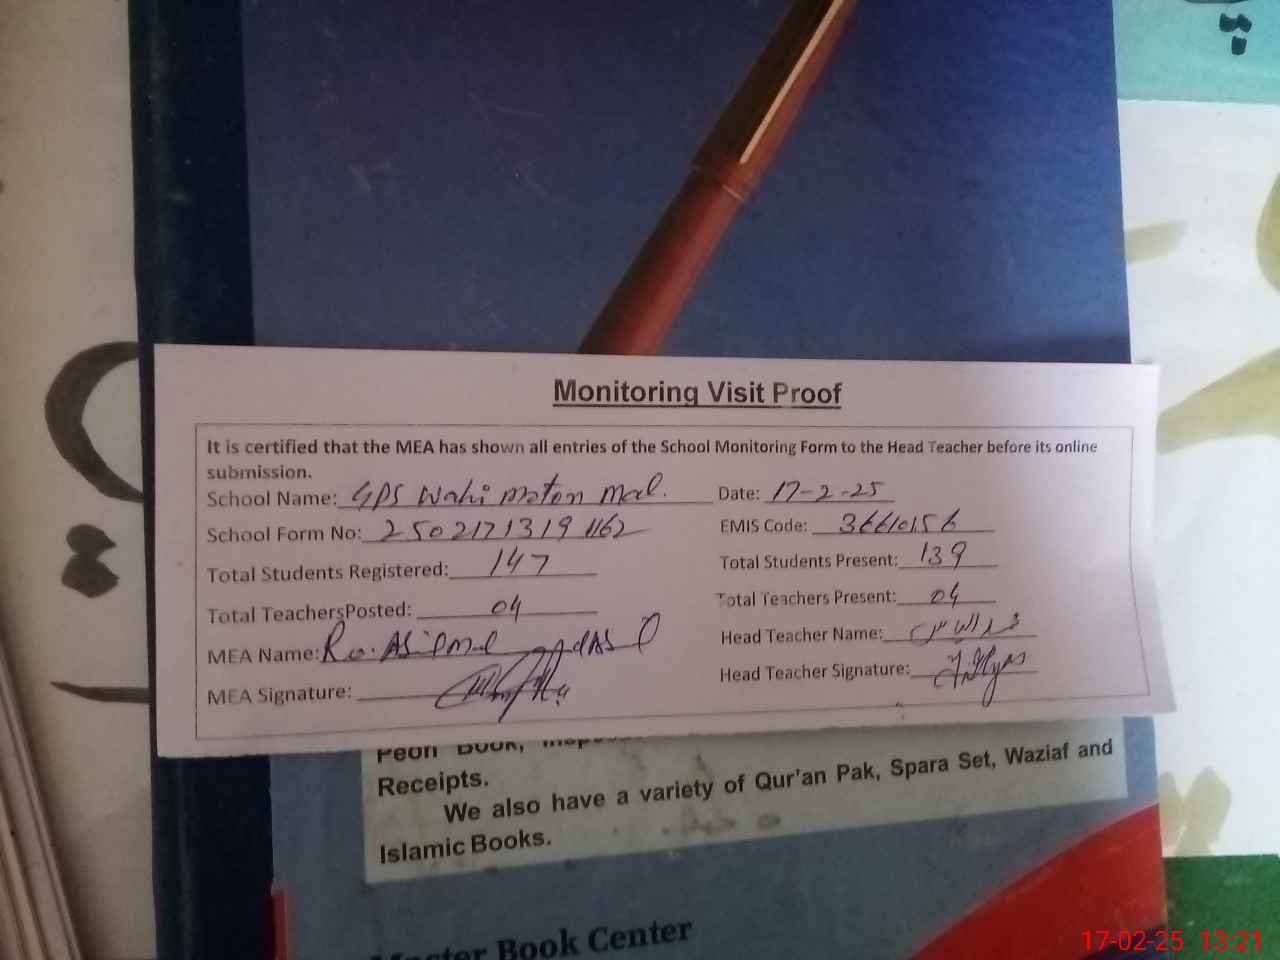 Monitoring Visit Proof
It is certified that the MEA has shown all entries of the School Monitoring Form to the Head Teacher before its online
submission.
School Name: GPS Wahi Moton Mal. Date: 17-2-25
School Form No: 2502171319 1162 EMIS Code: 36610156
Total Students Registered: 147 Total Students Present: 139
Total TeachersPosted: 04 Total Teachers Present: 04
MEA Name: Head Teacher Name: محمد الیاس
MEA Signature: Head Teacher Signature:
Peon Book,
Receipts.
We also have a variety of Qur'an Pak, Spara Set, Waziaf and
Islamic Books.
Master Book Center
17-02-25 13:21